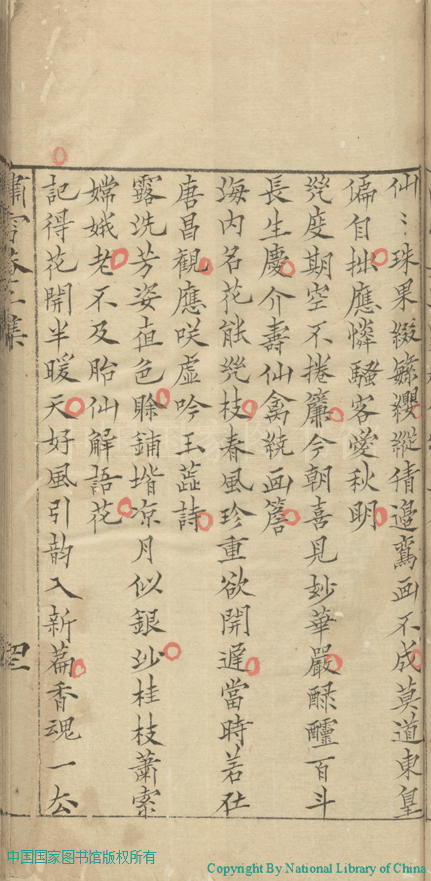 仙〻珠果綴繁纓縱倩邊鸞画不成莫道東皇
偏自拙應憐騷客愛秋明
幾度期空不捲簾今朝喜見妙華嚴醁醽百斗
長生慶介壽仙禽繞画簷
海内名花能幾枝春風珍重欲開遲當時若在
唐昌觀應咲虛吟玉蕋詩
露洗芳姿直色賒鋪堦凉月似銀沙桂枝蕭索
嫦娥老不及胎仙解語花
記得花開半暖天好風引韵入新篇香魂一去
四
中国国家图书馆版权所有
Copyright By National Library of China